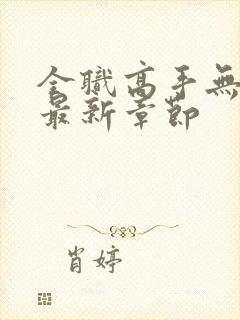 全職高手無
最新章節
肖婷